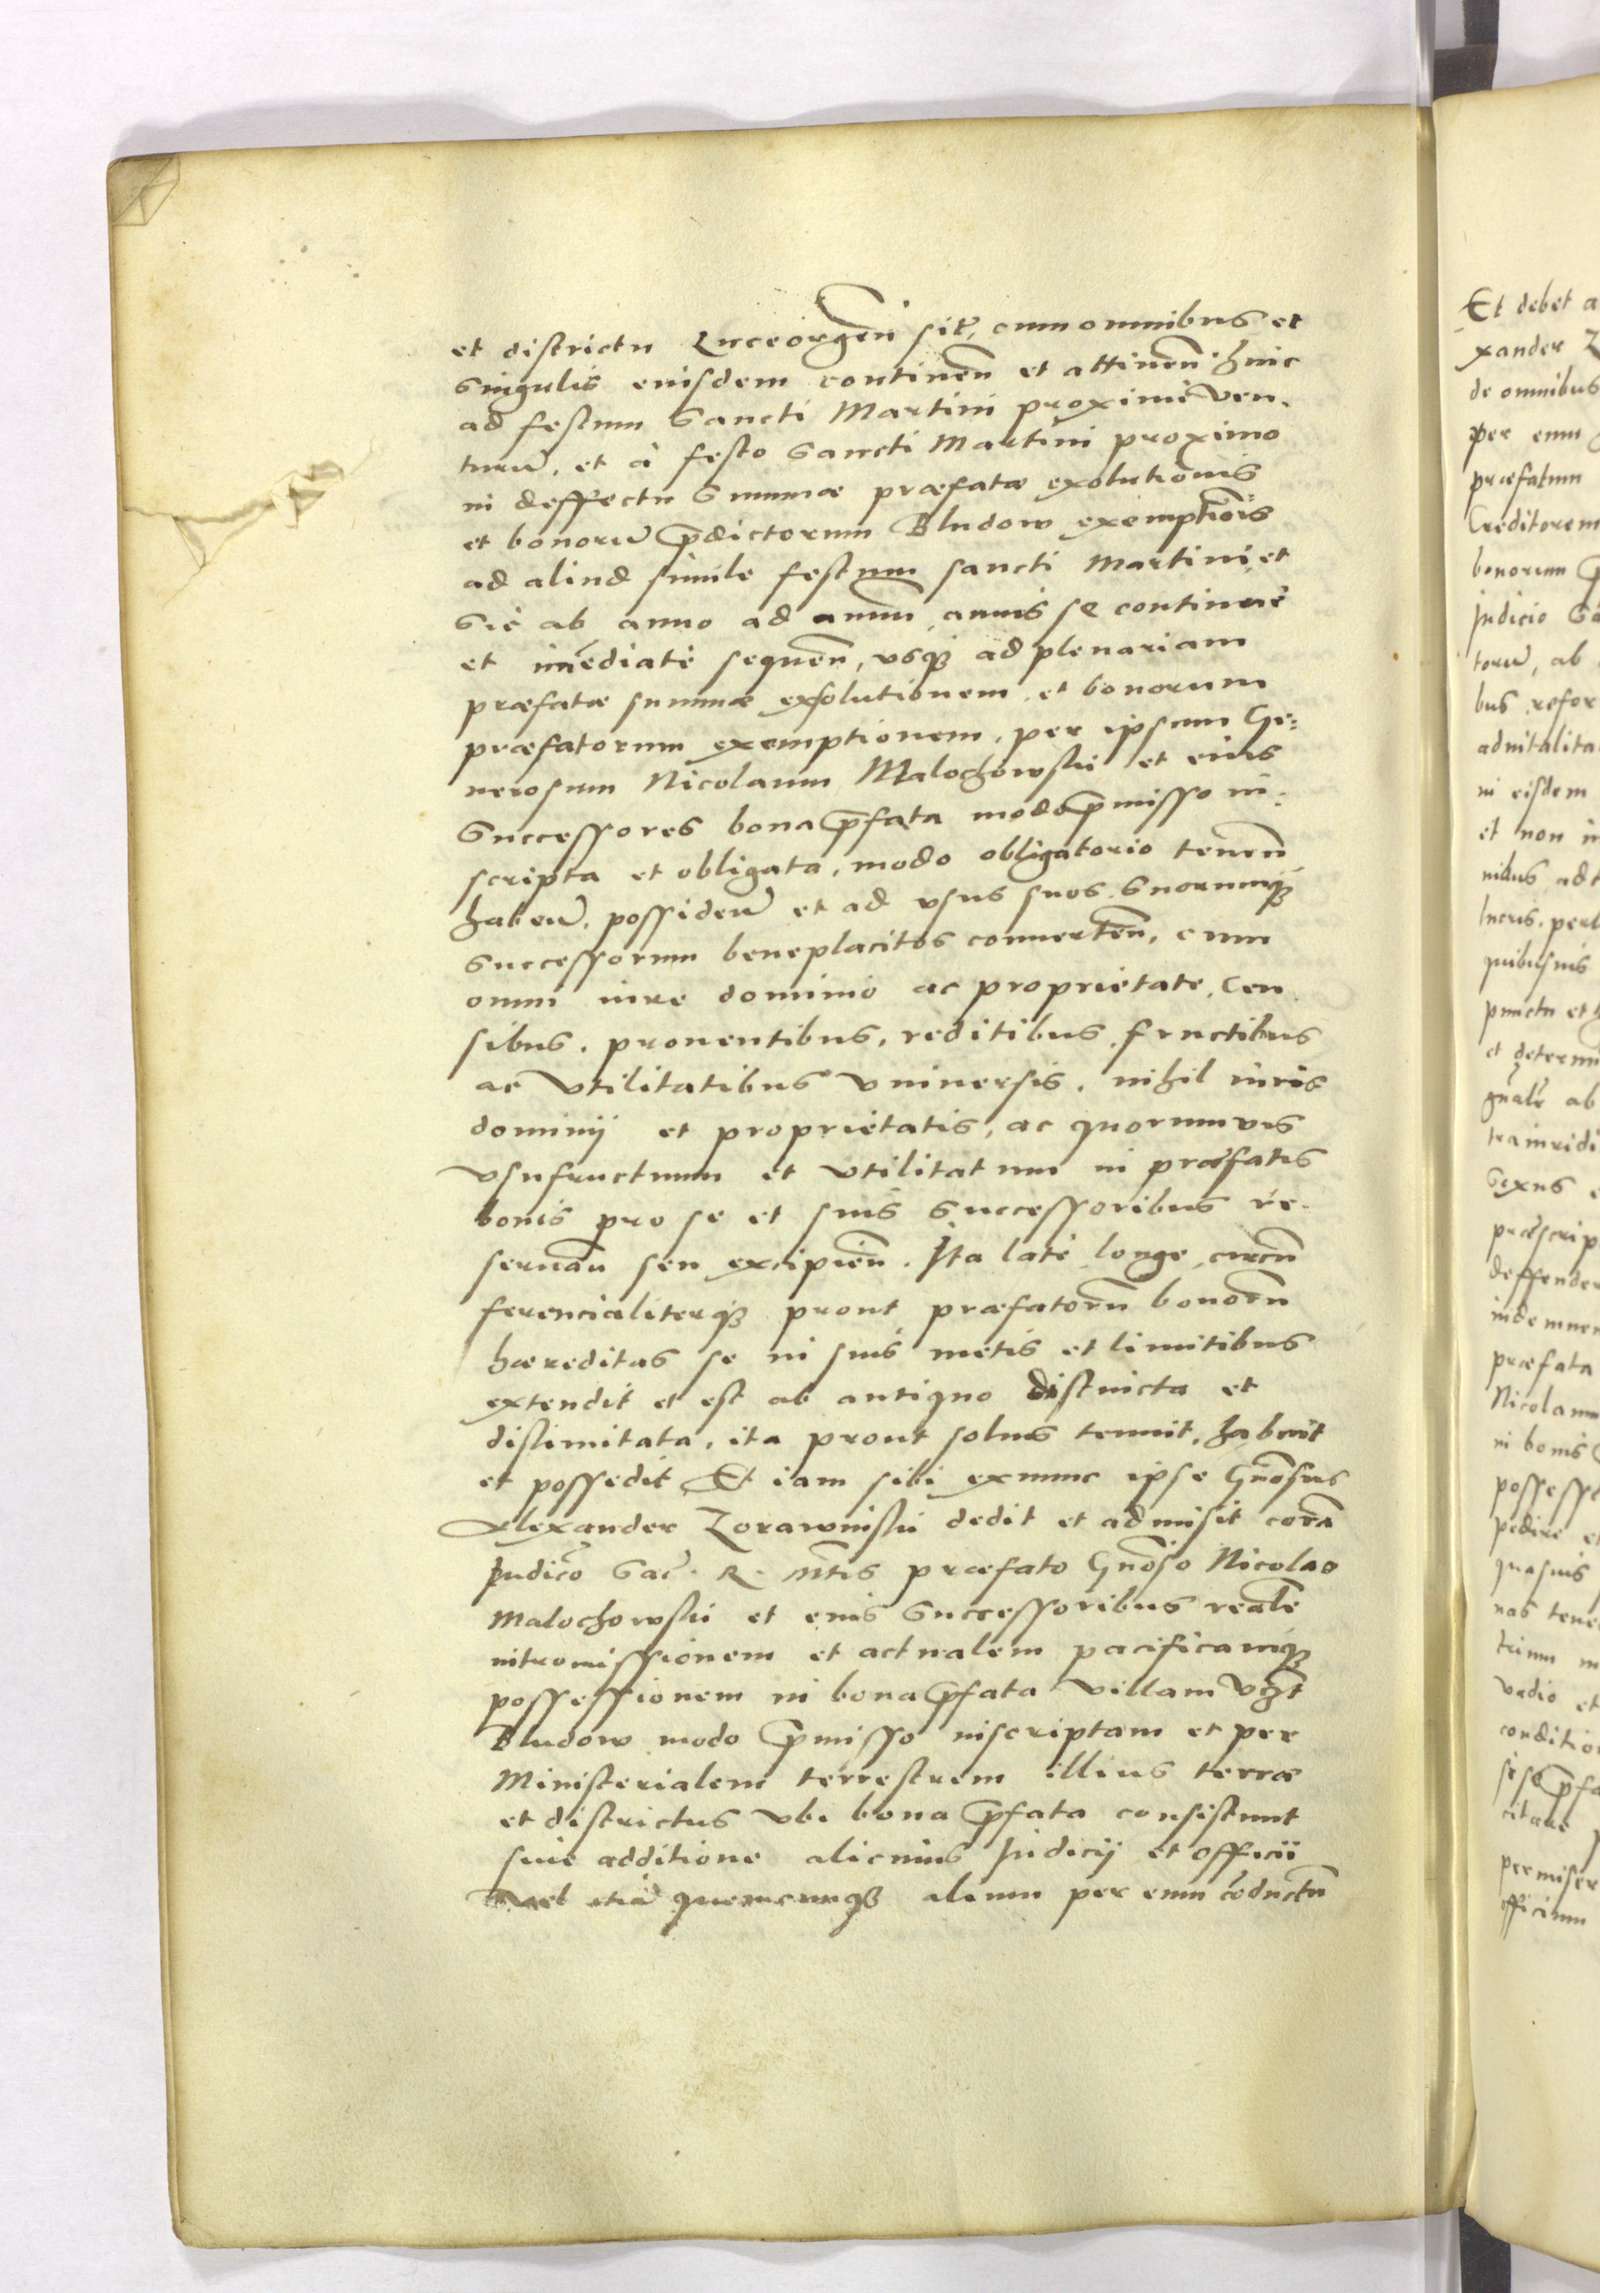 et districtu Luceorgeñ sit̃, cum omnibus et
singulis eiusdem contineñ et attineñ hinc
ad festum Sancti Martini proximè ven-
turũ, et à festo Sancti Martini proximo
in deffectu Summæ præfatæ exolutionis
et bonorũ p̃dictorum Bludow exemptiõis
ad aliud simile festum sancti Martini, et
sic ab anno ad annum, annis se continuè
et im̃ediatè sequeñ, vsq3 ad plenariam
præfatæ summæ exsolutionem, et bonorum
præfatorum exemptionem, per ipsum Ge=
nerosum Nicolaum Malochowski et eius
Successores bona p̃fata modo p̃misso in-
scripta et obligata, modo obligatorio teneñ
habeñ, possideñ et ad vsus suos, Suorumq3
successorum beneplacitos conuerteñ, cum
omni iure dominio ac proprietate, Cen
sibus, prouentibus, reditibus, fructibus
ac vtilitatibus vniuersis, nihil iuris
dominij et proprietatis, ac quorumuis
vsufructuum et vtilitatum in præfatis
bonis pro se et suis Successoribus re-
seruañ seu excipieñ. Ita latè longe, circũ
ferencialiterq3 prout præfatorũ bonorũ
hæreditas se in suis metis et limitibus
extendit et est ab antiquo distincta et
dislimitata, ita prout solus tenuit, habuit
et possedit Et iam sibi exnunc ipse Gñosus
Alexander Zorawniski dedit et admisit corã
Judic̃o Sac̃. R. Mtis præfato Gñoso Nicolao
Malochowski et eius Successoribus realẽ
intromissionem et actualem pacificamq3
possessionem in bona p̃fata villam vz̃t
Bludow modo p̃misso inscriptam et per
Ministerialem terrestrem illius terræ
et districtus vbi bona p̃fata consistunt
siue additione alicuius Judicij et officii
vel etiã quemcunq3 alium per eum cõductũ
Et debet a
xander Z
de omnibus
per eum
præfatum
Creditorem
bonorum
Judicio Sa
torũ, ab
bus refor
aduitalita
in eisdem
et non in
nibus adt
lucris, perl
quibusuis
puncta et
et determi
gñalẽ ab
tra iuridi
sexus
præscrip
deffender
indemnem
præfata
Nicolaum
in bonis
possess
pedire et
quasuis
nas tene
trium m
vadio et
conditio
se p̃fa
citare
permiser
officium